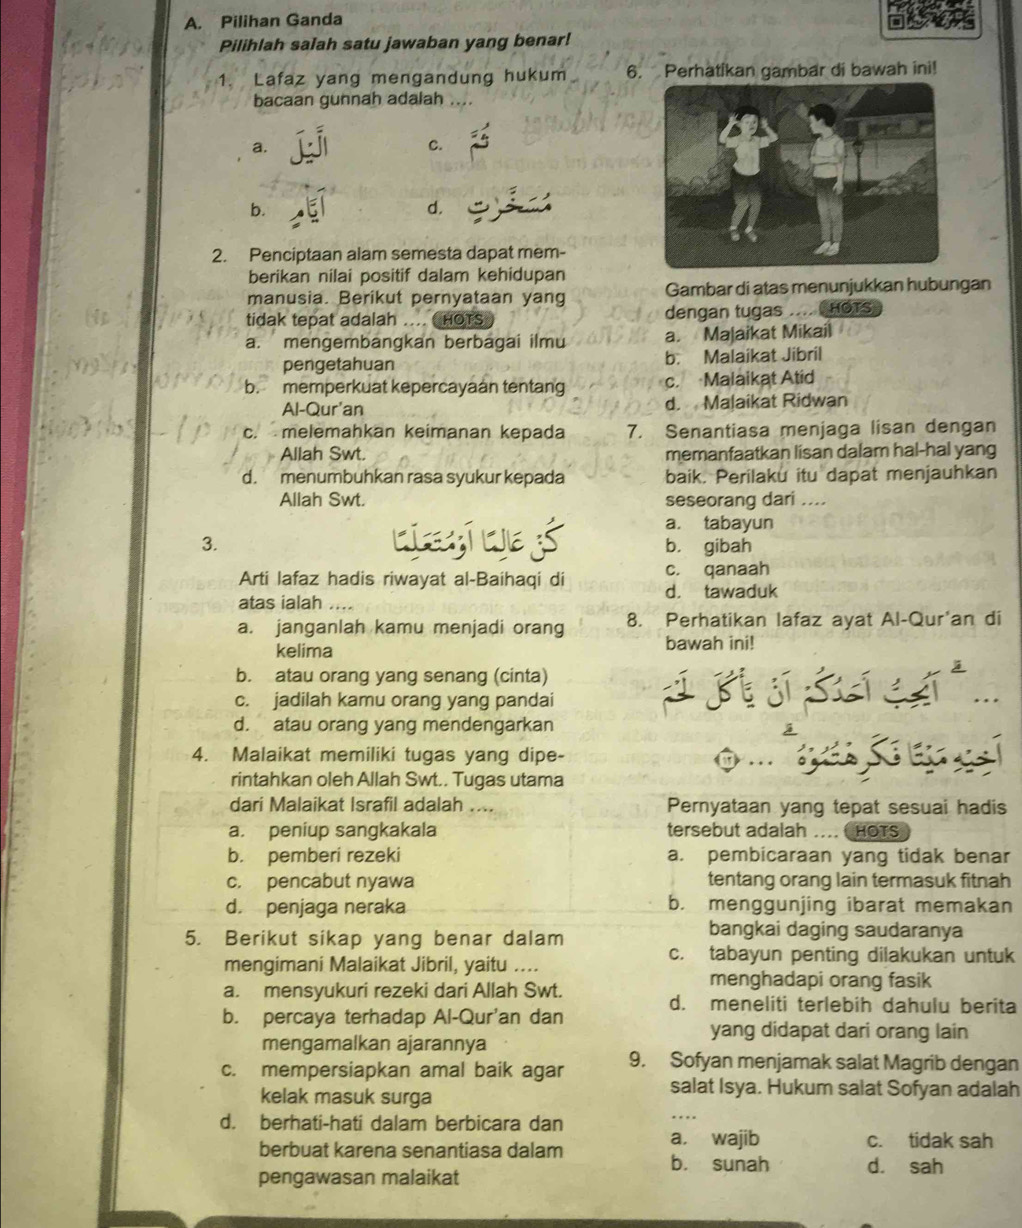 A. Pilihan Ganda
Pilihlah salah satu jawaban yang benar!
1. Lafaz yang mengandung hukum
bacaan gunnah adalah ....
a. اَلَّيْلَ
c. ثُمَّ
b. اَيَّامٍ
d. مُسَخَّرٰتٍ
2. Penciptaan alam semesta dapat mem-
berikan nilai positif dalam kehidupan
manusia. Berikut pernyataan yang
tidak tepat adalah .... HOTS
a. mengembangkan berbagai ilmu
pengetahuan
b. memperkuat kepercayaan tentang
Al-Qur'an
c. melemahkan keimanan kepada
Allah Swt.
d. menumbuhkan rasa syukur kepada
Allah Swt.
3. كُنْ عَالِمًا اَوْ مُتَعَلِّمًا
Arti lafaz hadis riwayat al-Baihaqi di
atas ialah ....
a. janganlah kamu menjadi orang
kelima
b. atau orang yang senang (cinta)
c. jadilah kamu orang yang pandai
d. atau orang yang mendengarkan
4. Malaikat memiliki tugas yang dipe-
rintahkan oleh Allah Swt.. Tugas utama
dari Malaikat Israfil adalah ....
a. peniup sangkakala
b. pemberi rezeki
c. pencabut nyawa
d. penjaga neraka
5. Berikut sikap yang benar dalam
mengimani Malaikat Jibril, yaitu ....
a. mensyukuri rezeki dari Allah Swt.
b. percaya terhadap Al-Qur'an dan
mengamalkan ajarannya
c. mempersiapkan amal baik agar
kelak masuk surga
d. berhati-hati dalam berbicara dan
berbuat karena senantiasa dalam
pengawasan malaikat
6. Perhatikan gambar di bawah ini!
Gambar di atas menunjukkan hubungan
dengan tugas .... HOTS
a. Malaikat Mikail
b. Malaikat Jibril
c. Malaikat Atid
d. Malaikat Ridwan
7. Senantiasa menjaga lisan dengan
memanfaatkan lisan dalam hal-hal yang
baik. Perilaku itu dapat menjauhkan
seseorang dari ....
a. tabayun
b. gibah
c. qanaah
d. tawaduk
8. Perhatikan lafaz ayat Al-Qur'an di
bawah ini!
... ۗ اَيُحِبُّ اَحَدُكُمْ اَنْ يَّأْكُلَ لَحْمَ
اَخِيْهِ مَيْتًا فَكَرِهْتُمُوْهُ ۗ ... ١٢
Pernyataan yang tepat sesuai hadis
tersebut adalah .... HOTS
a. pembicaraan yang tidak benar
tentang orang lain termasuk fitnah
b. menggunjing ibarat memakan
bangkai daging saudaranya
c. tabayun penting dilakukan untuk
menghadapi orang fasik
d. meneliti terlebih dahulu berita
yang didapat dari orang lain
9. Sofyan menjamak salat Magrib dengan
salat Isya. Hukum salat Sofyan adalah
....
a. wajib
c. tidak sah
b. sunah
d. sah